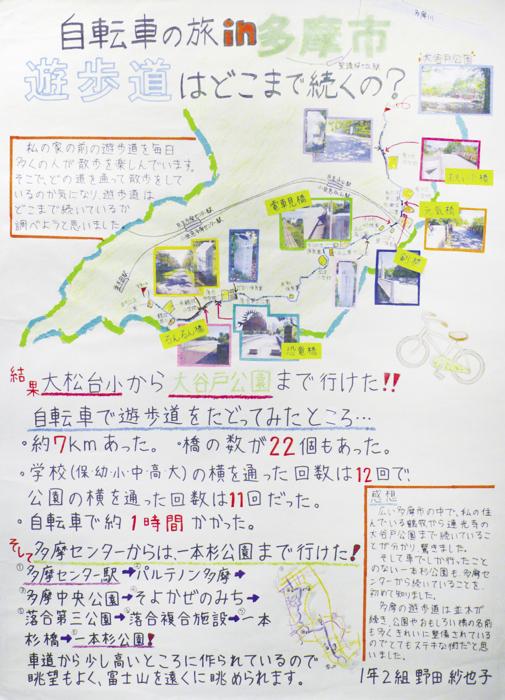 自転車の旅in多摩市
遊歩道はどこまで続くの？
多摩川
大谷戸公園
私の家の前の遊歩道を毎日
多くの人が散歩を楽しんでいます。
そこで、どの道を通って散歩をして
いるのか気になり、遊歩道は
どこまで続いているか
調べようと思いました。
電車見橋
元気橋
らんらん橋
恐竜橋
結果 大松台小から大谷戸公園まで行けた!!
自転車で遊歩道をたどってみたところ…
・約7kmあった。 ・橋の数が22個もあった。
・学校(保・幼・小・中・高・大)の横を通った回数は12回で、
公園の横を通った回数は11回だった。
・自転車で約1時間かかった。
そして多摩センターからは、一本杉公園まで行けた!
①多摩センター駅→②パルテノン多摩→
③多摩中央公園→④そよかぜのみち→
⑤落合第三公園→⑥落合複合施設→⑦一本
杉橋→⑧一本杉公園!
車道から少し高いところに作られているので
眺望もよく、富士山を遠くに眺められます。
感想
広い多摩市の中で、私の住
んでいる鶴牧から連光寺の
大谷戸公園まで続いているこ
とが分かり、驚きました。
そして車でしか行ったこと
のない一本杉公園も、多摩セ
ンターから続いていることを、
初めて知りました。
多摩の遊歩道は並木が
続き、公園やおもしろい橋の名前
も多くきれいに整備されている
のでとてもステキな街だと思
いました。
1年2組 野田 紗也子